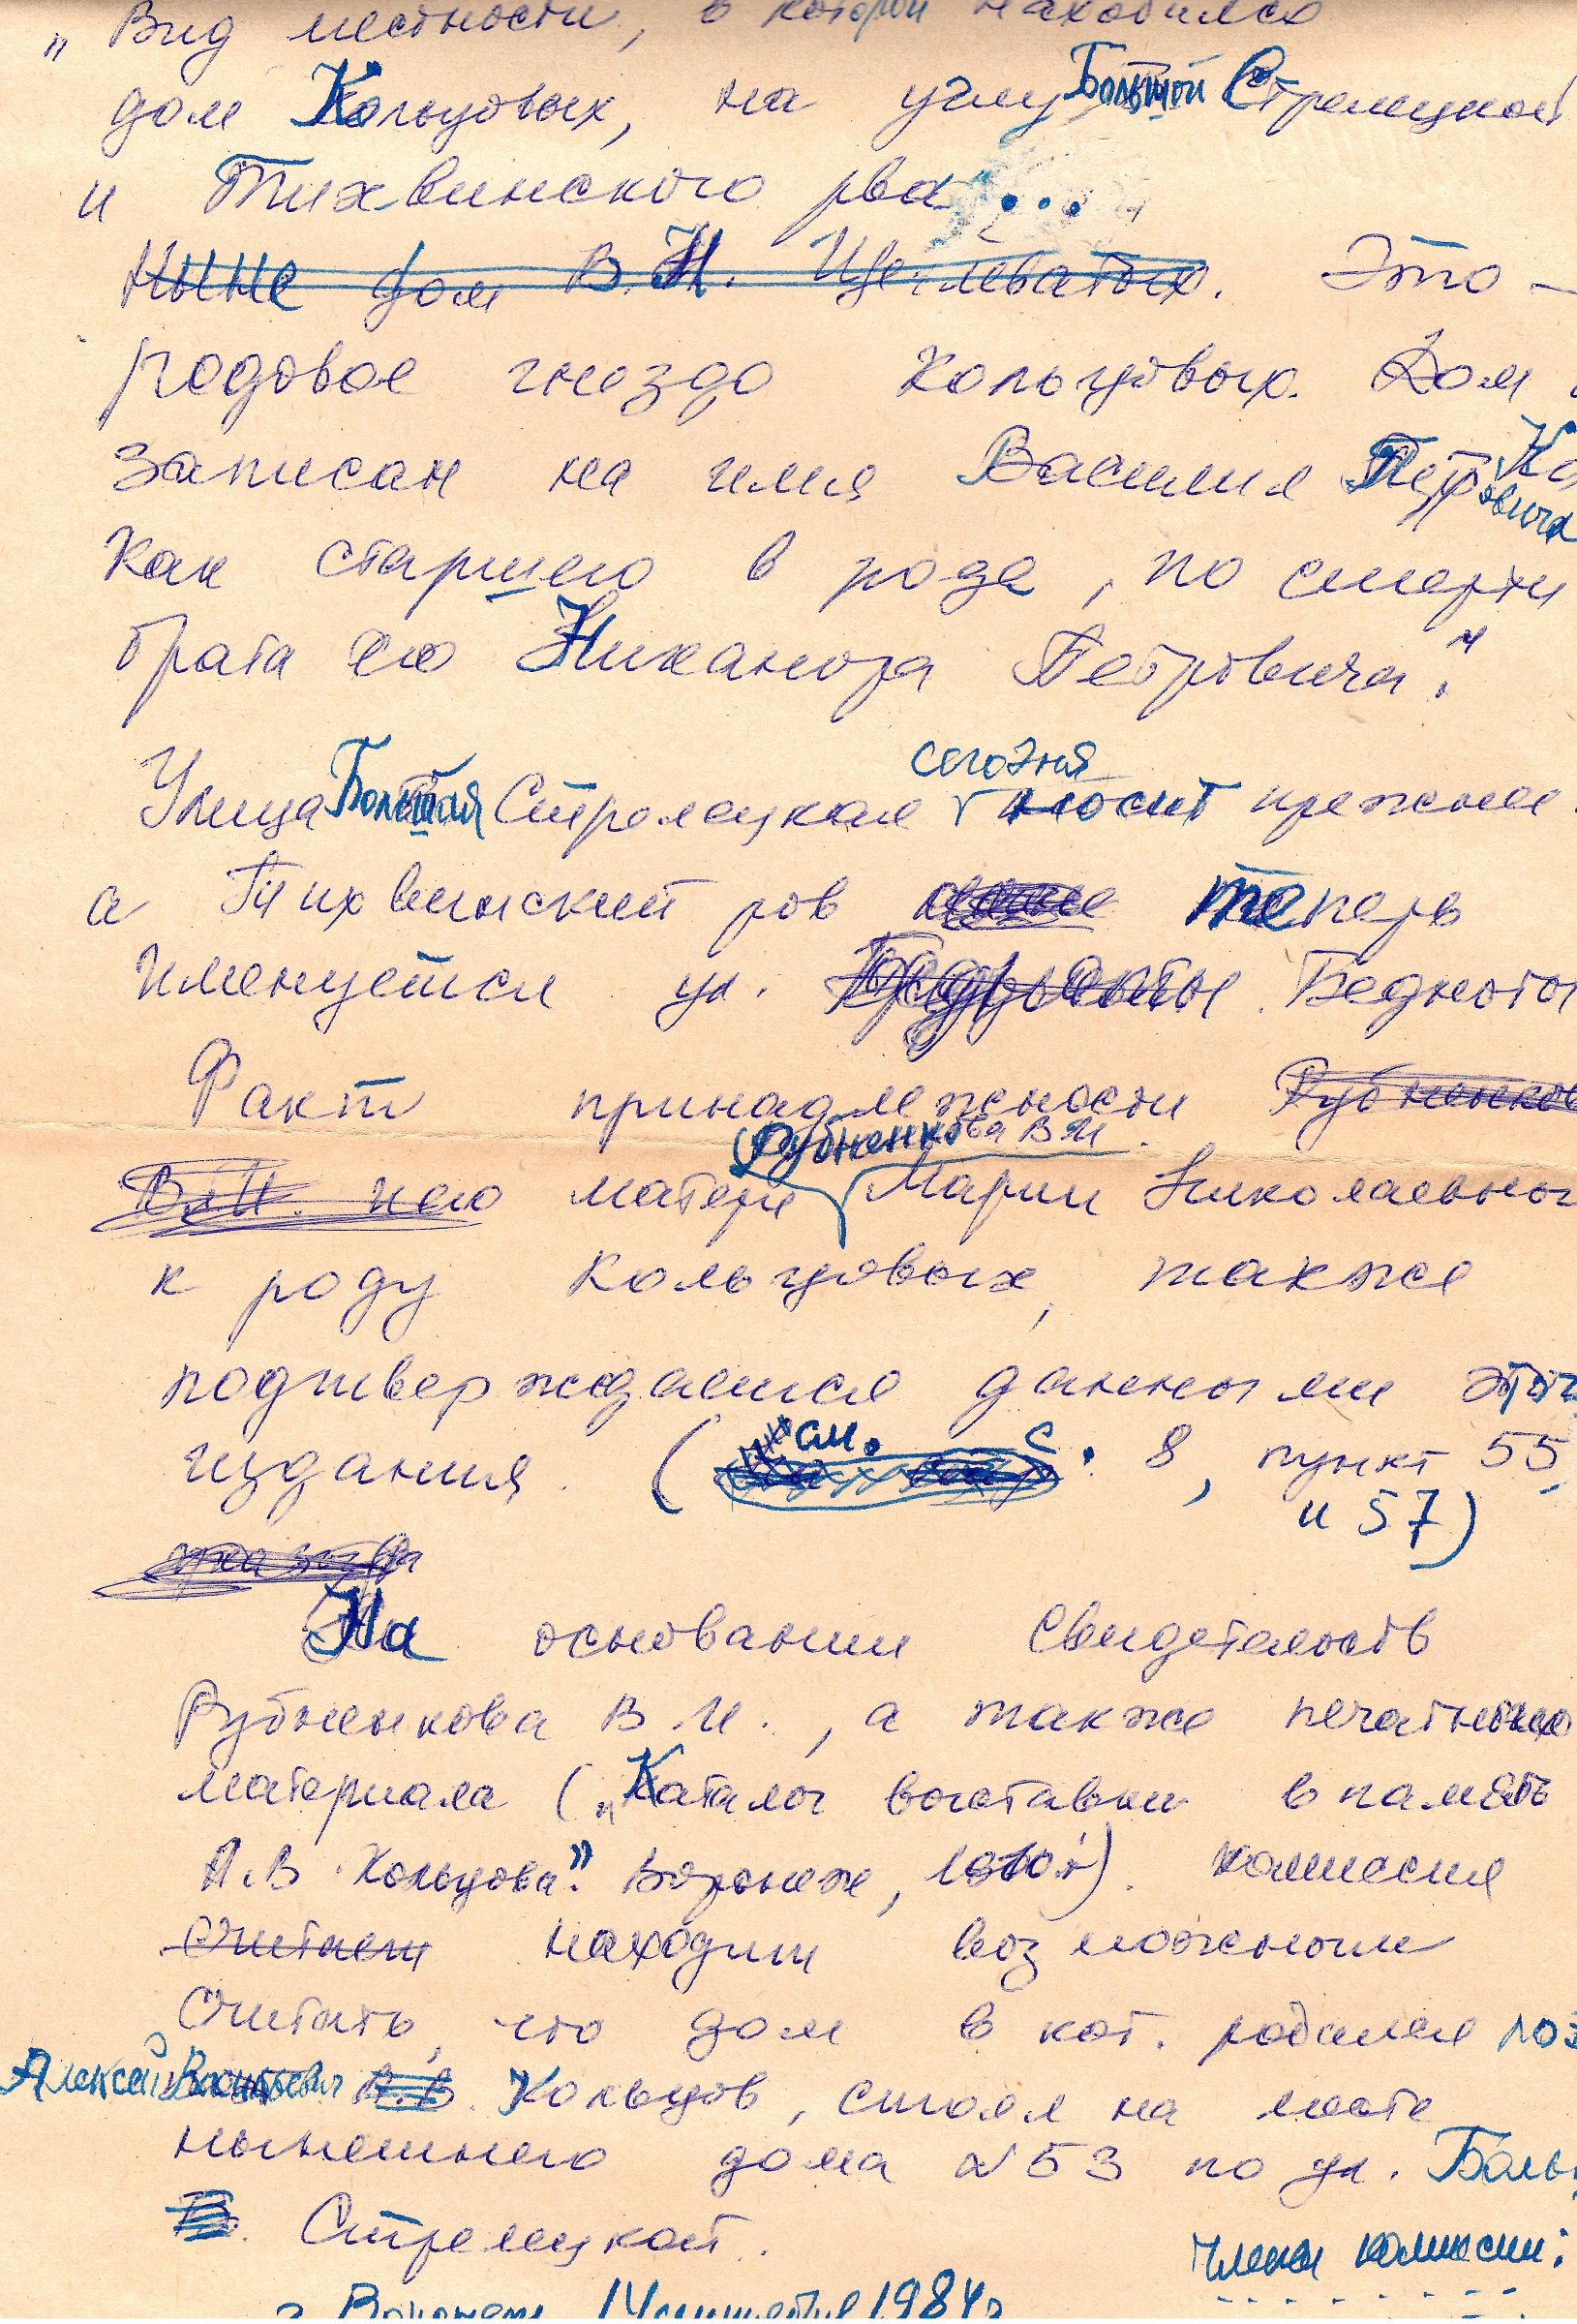 „Вид местности, в которой находился
дом Кольцовых, на углу Большой Стрелецкой
и Тихвинского рва...
ныне дом В.Н. Щекleватых. Это —
родовое гнездо Кольцовых. Дом
записан на имя Василия Петровича Ко
как старшего в роде, по смерти
брата его Никанора Петровича."
сегодня
Улица Большая Стрелецкая носит прежнее
а Тихвинский ров теперь
именуется ул. Бедноты
Факт принадлежности Рубненков
Рубненкова В И
В.И. и его матери Марии Николаевны
к роду Кольцовых, также
подтверждается данными этог
издания. (см. с. 8, пункт 55
и 57)
На основании свидетельств
Рубненкова В.И., а также печатного
материала („Каталог выставки в память
А.В. Кольцова". Воронеж, г.). комиссия
считает находит возможным
считать, что дом в кот. родился поэ
Алексей Васильевич А.В. Кольцов, стоял на месте
нынешнего дома №53 по ул. Боль
Б. Стрелецкой.
Члены комиссии:
г. Воронеж 1984г